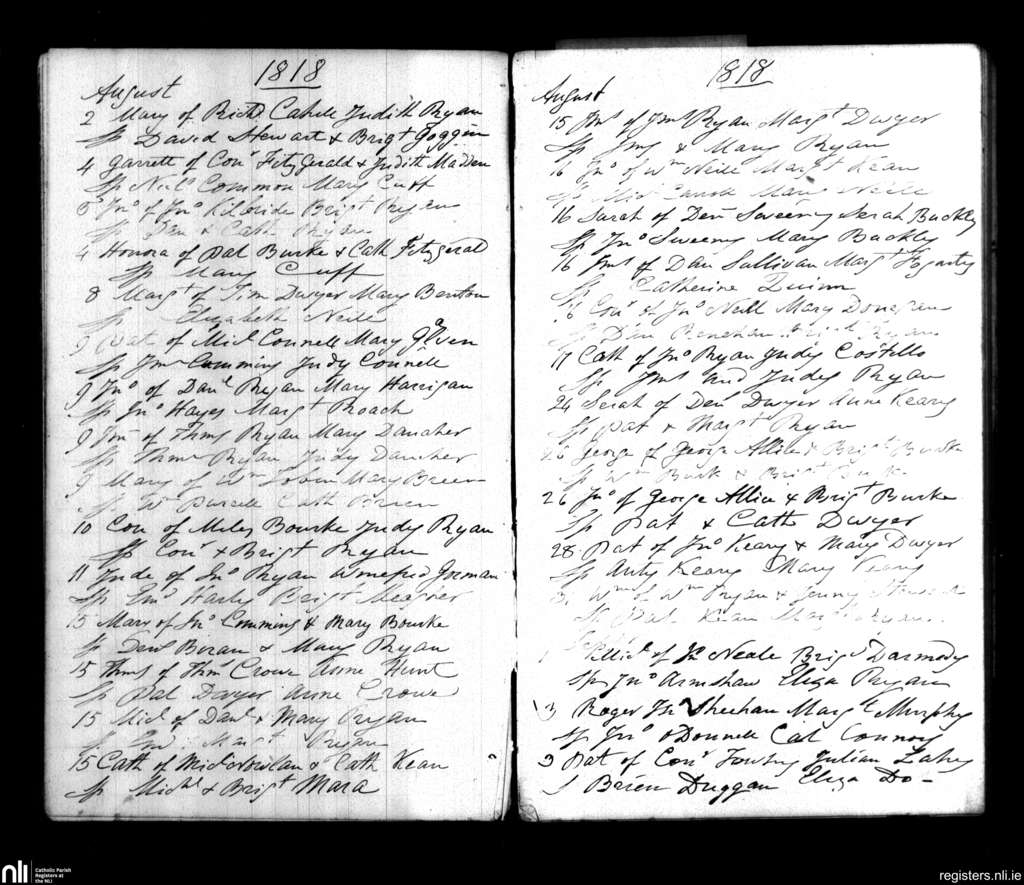 1818
August
2 Mary of Richd Cahill Judith Ryan
Sp David Stewart & Brigt Goggin
4 Garrett of Conr FitzGerald & Judith Madden
Sp Nicls Common Mary Cuff
5 Jno of Jno Kilbride Brigt Ryan
Sp Den & Cath Ryan
4 Honora of Pat Burke & Cath Fitzgerald
Sp Mary Cuff
8 Margt of Tim Dwyer Mary Benton
Sp Elizabeth Neill
9 Pat of Michl Connell Mary
Sp Jms Cumming Judy Connell
9 Jno of Danl Ryan Mary Harrigan
Sp Jno Hayes Margt Roach
9 of Thms Ryan Mary Danaher
Sp Thms Ryan Judy Danaher
9 Mary of Wm Tobin Mary Breen
Sp Wm Purcell Cath
10 Con of Miles Bourke Judy Ryan
Sp Conr & Brigt Ryan
11 Jude of Jno Ryan Winefred Gorman
Sp Harty Brigt Meagher
15 Mary of Jno Comming & Mary Bourke
Sp Denl Boran & Mary Ryan
15 Thms of Thms Crowe Anne Hunt
Sp Pat Dwyer Anne Crowe
15 Micl of Danl & Mary Ryan
Sp Margt Ryan
15 Cath of Micl Nowlan & Cath Kean
Sp Michl & Brigt Mara
1818
August
15 Jms of Jms Ryan Margt Dwyer
Sp Jms & Mary Ryan
16 Jno of Wm Neill Margt Kean
Sp Mary Neill
16 Sarah of Denl Sweeny Serah Buckley
Sp Jno Sweeny Mary Buckley
16 Jms of Dan Sullivan Margt Fogarty
Sp Catherine Quinn
16 Conr of Jno Neill Mary Donegan
Sp Dan Ryan
17 Cath of Jno Ryan Judy Costillo
Sp Jms and Judy Ryan
24 Serah of Denl Dwyer Anne Keary
Sp Pat & Margt Ryan
26 George of George Allen & Brigt Burke
Sp Wm Burk & Brigt
26 Jno of George Allice & Brigt Burke
Sp Pat & Cath Dwyer
28 Pat of Jno Keary & Mary Dwyer
Sp Anty Keary Mary Keary
Wm of Wm Ryan & Jenny
Sp Pat Kean Margt Ryan
Septr
1 Michl of Jn Neale Brigt Darmody
Sp Jno Armshaw Eliza Ryan
3 Roger Jno Sheehan Margt Murphy
Sp Jno ODonnell Cat Connors
3 Pat of Conr Julian Lahy
S Brien Duggan Eliza Do-
nli
Catholic Parish
Registers at
the NLI
registers.nli.ie